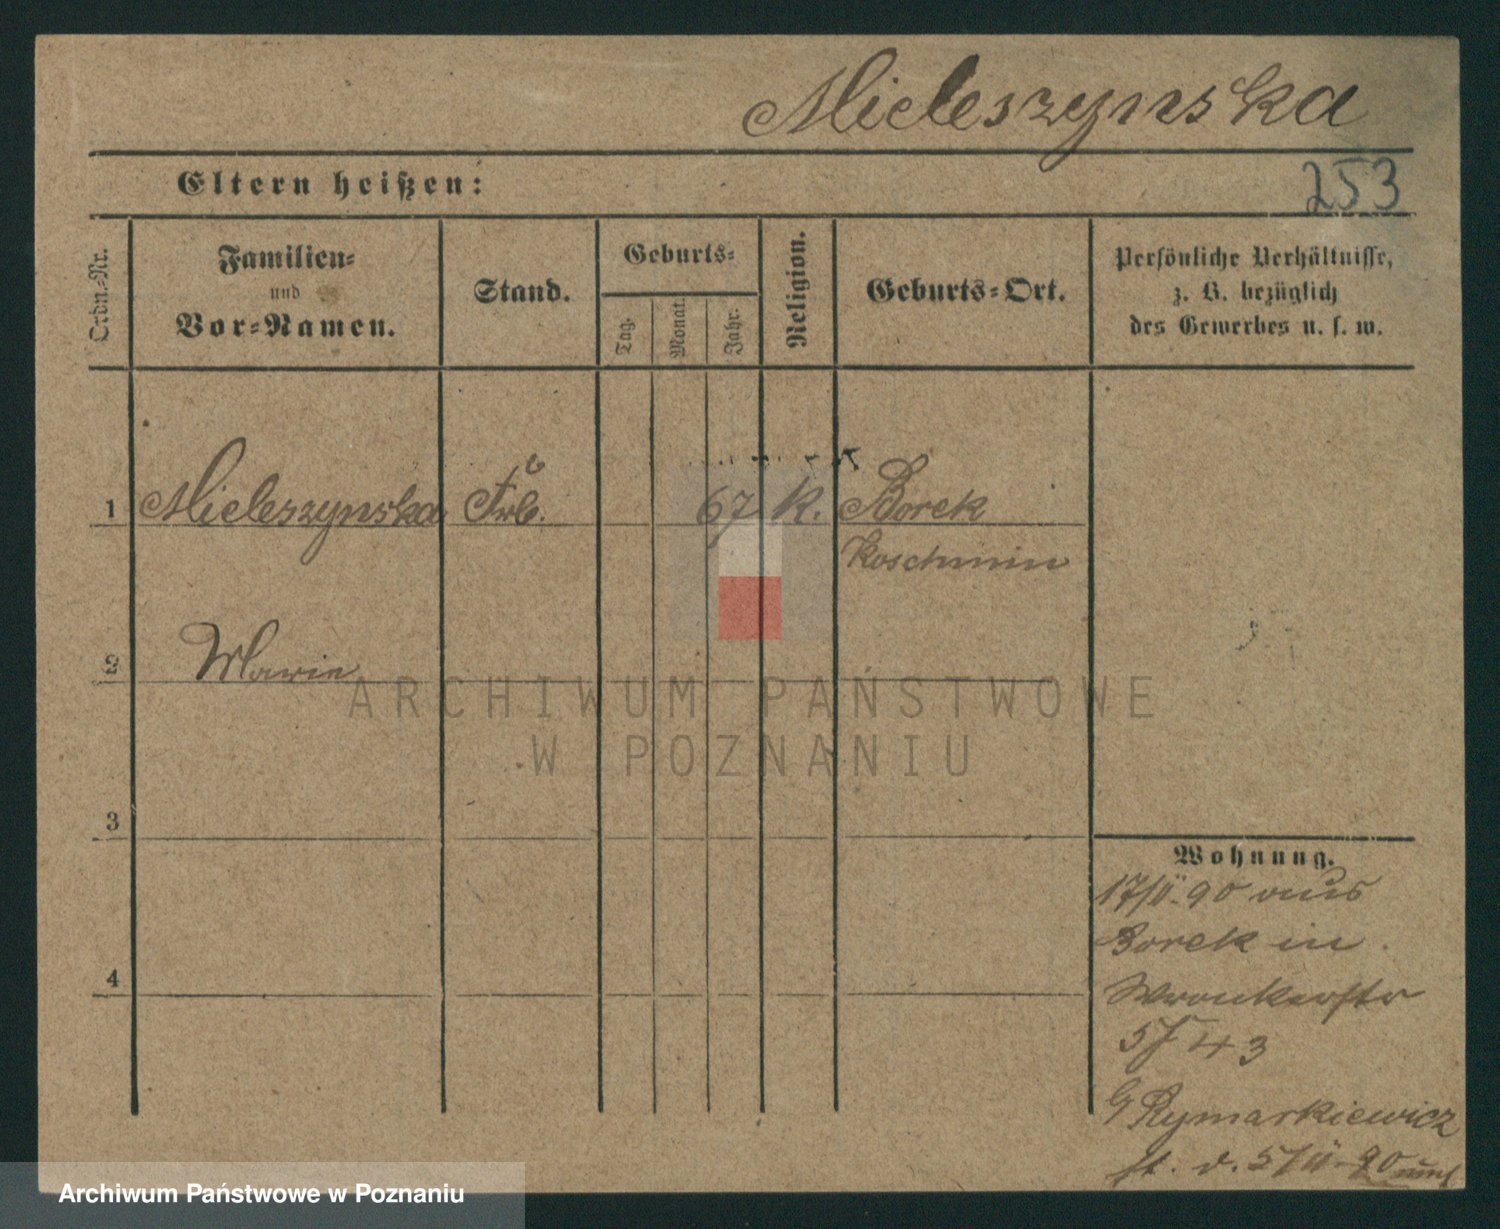 Mieleszynska
Eltern heißen:
253
Ordn.-Nr.
Familien-
und
Vor-Namen.
Stand.
Geburts-
Tag.
Monat.
Jahr.
Religion.
Geburts-Ort.
Persönliche Verhältnisse,
z. B. bezüglich
des Gewerbes u. s. w.
1 Mieleszynska 67 K. Borek
Koschmin
2 Marie
ARCHIWUM PAŃSTWOWE
W POZNANIU
3
4
Wohnung.
17/II. 90 aus
Borek in
Wronkerstr
43
G Rymarkiewicz
Archiwum Państwowe w Poznaniu